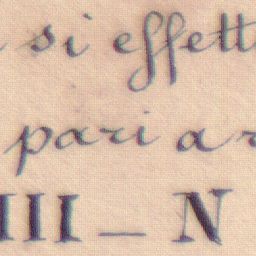 si effett
pari a
III – N